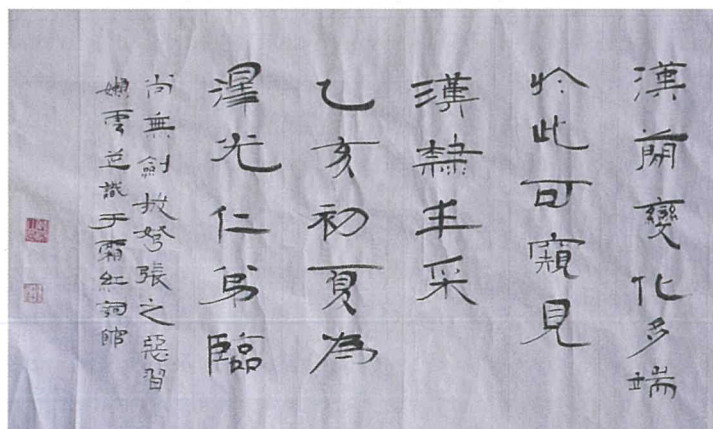 漢簡變化多端
於此可窺見
漢隸丰采
乙亥初夏為
澤光仁弟臨
尚無劍拔弩張之惡習
嬾雲並識于霜紅詞館